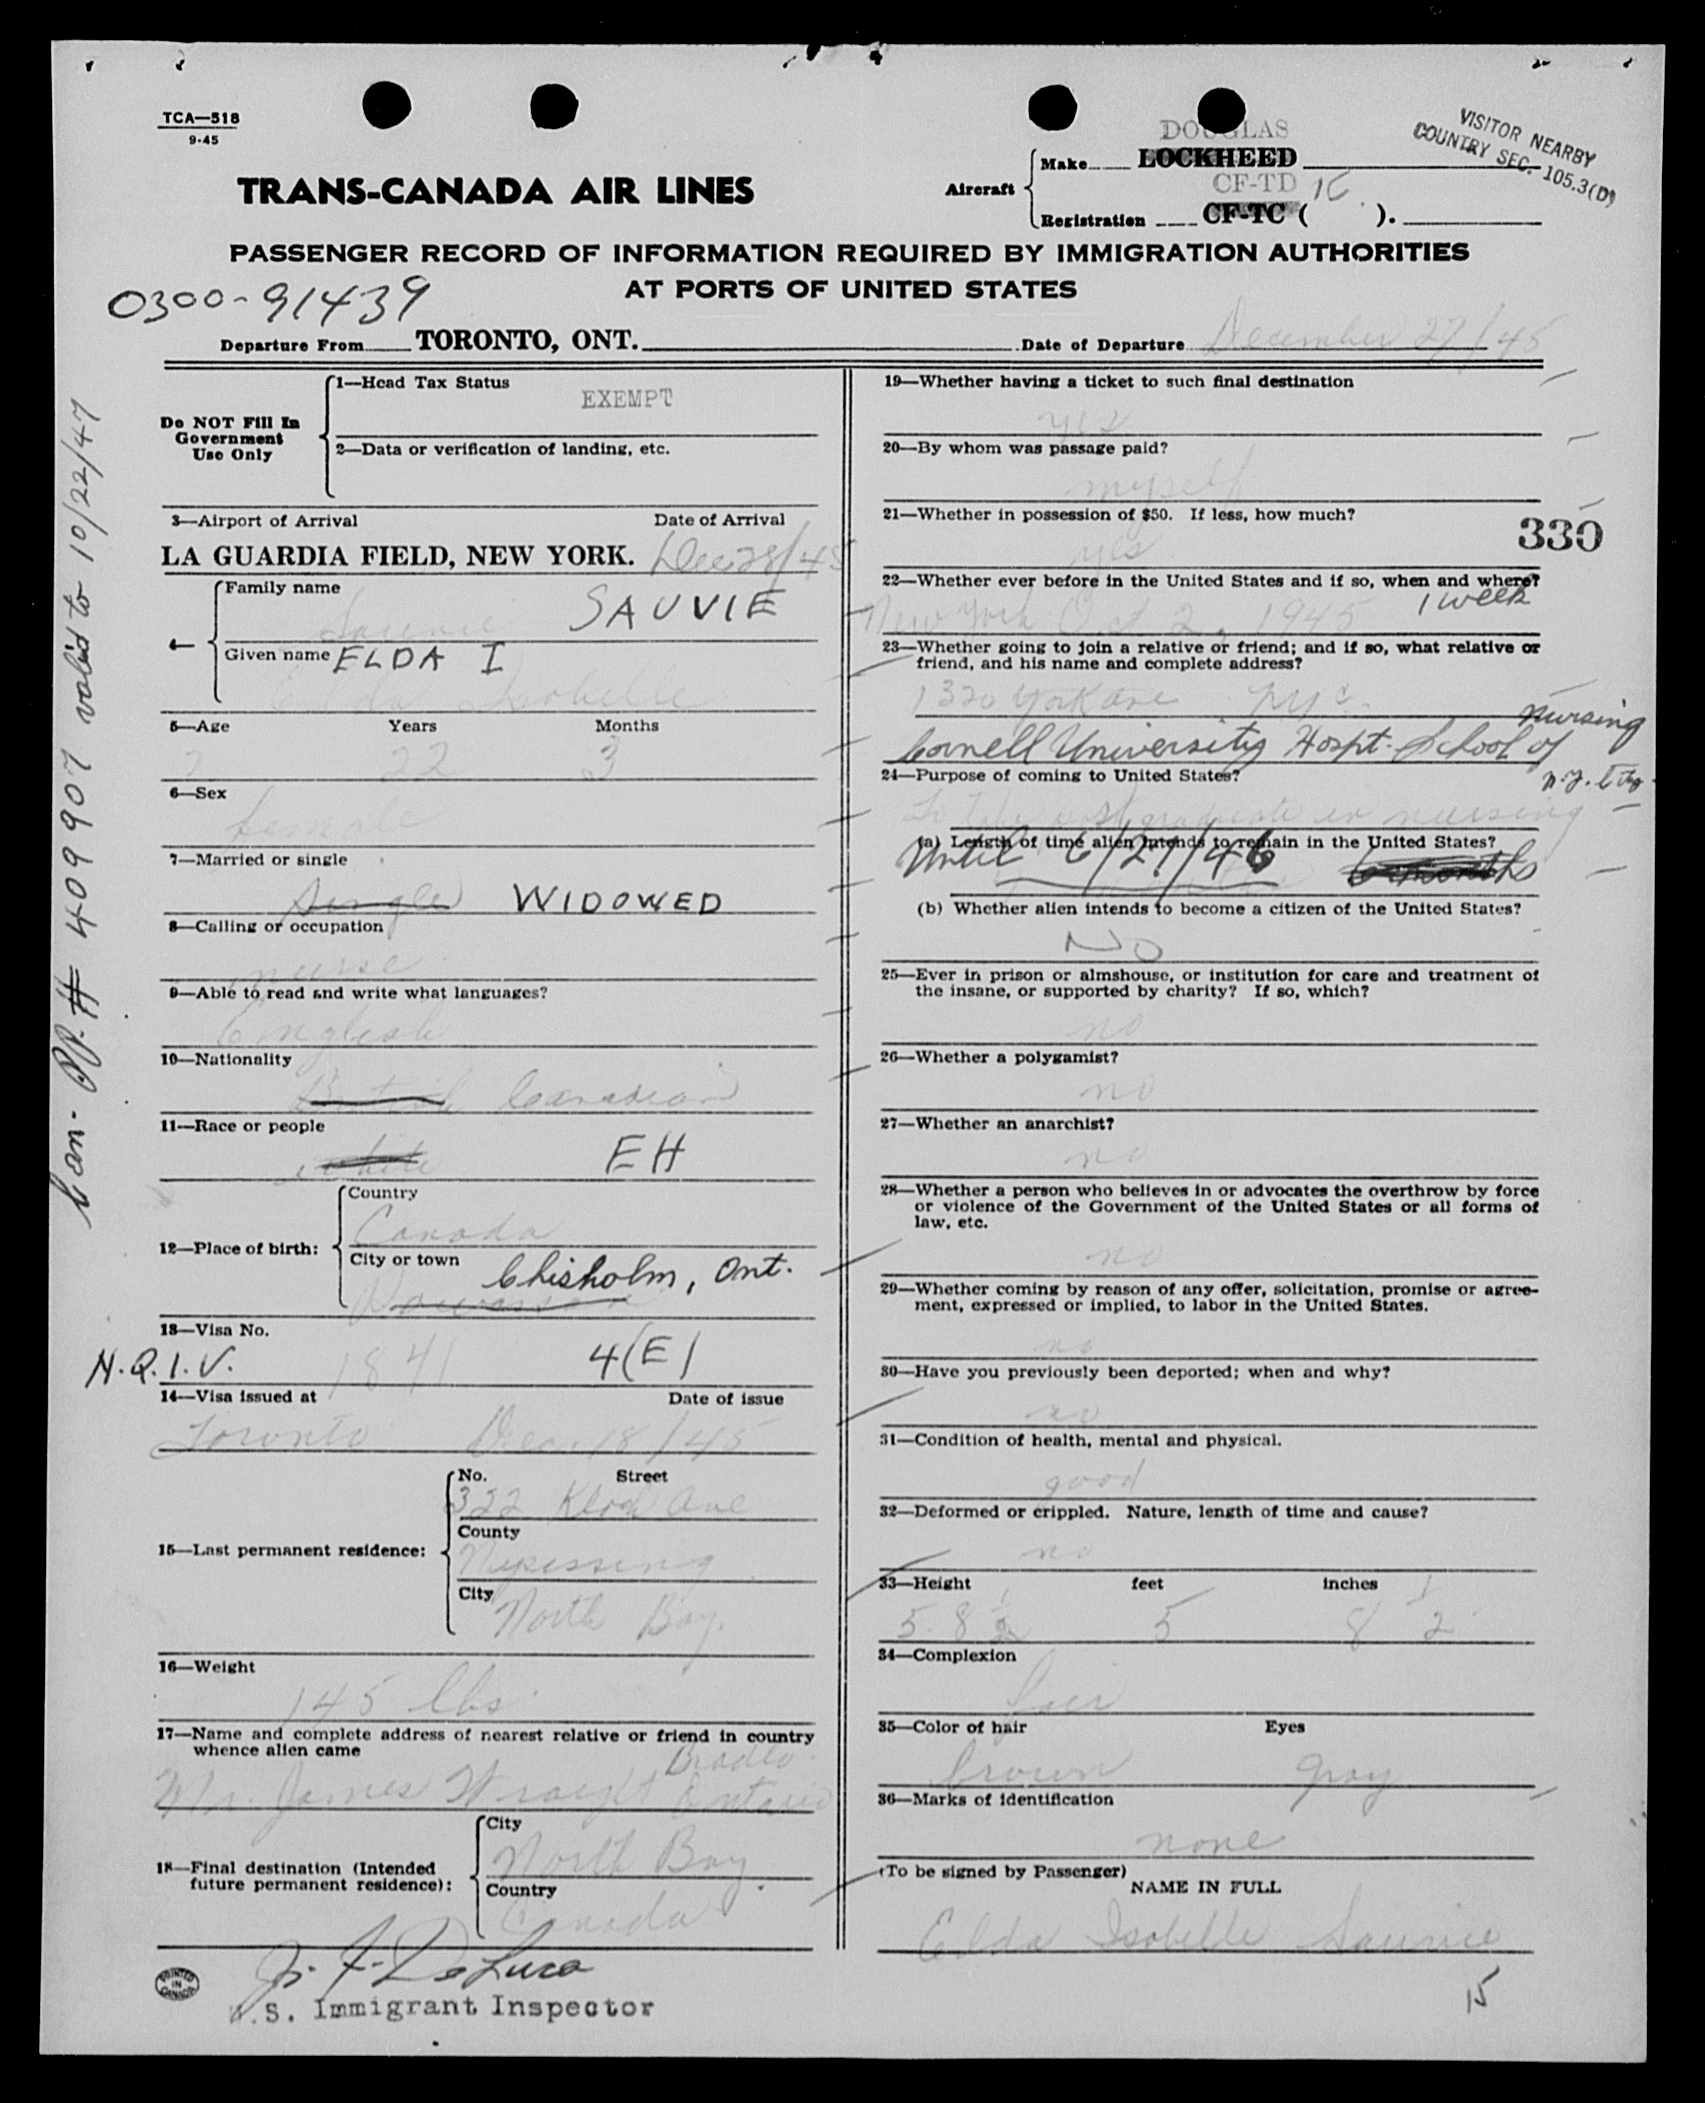 TCA—518
9-45
VISITOR NEARBY
COUNTRY SEC. 105.3(D)
DOUGLAS
Make LOCKHEED
TRANS-CANADA AIR LINES
Aircraft
CF-TD
Registration CF-TC ( ).
PASSENGER RECORD OF INFORMATION REQUIRED BY IMMIGRATION AUTHORITIES
AT PORTS OF UNITED STATES
0300-91439
Departure From TORONTO, ONT. Date of Departure December 27/45
Do NOT Fill In
Government
Use Only
1—Head Tax Status
EXEMPT
2—Data or verification of landing, etc.
3—Airport of Arrival Date of Arrival
LA GUARDIA FIELD, NEW YORK. Dec 28/45
4—
Family name
SAUVIE
Given name ELDA I
Elda Isobelle
5—Age Years Months
22 3
6—Sex
female
7—Married or single
Single WIDOWED
8—Calling or occupation
nurse
9—Able to read and write what languages?
English
10—Nationality
British Canadian
11—Race or people
white EH
12—Place of birth:
Country
Canada
City or town Chisholm, Ont.
13—Visa No.
N.Q.I.V. 1841 4(E)
14—Visa issued at Date of issue
Toronto Dec. 18/45
15—Last permanent residence:
No. Street
322 Ave
County
Nipissing
City
North Bay.
16—Weight
145 lbs.
17—Name and complete address of nearest relative or friend in country
whence alien came
Mr. James Wraight Ontario
18—Final destination (Intended
future permanent residence):
City
North Bay
Country
Canada
J. F. De Luca
U.S. Immigrant Inspector
PRINTED
IN
CANADA
Can- PP. # 409907 valid to 10/22/47
19—Whether having a ticket to such final destination
yes
20—By whom was passage paid?
myself
21—Whether in possession of $50. If less, how much?
yes
330
22—Whether ever before in the United States and if so, when and where?
New York Oct 2, 1945 1 week
23—Whether going to join a relative or friend; and if so, what relative or
friend, and his name and complete address?
1320 York Ave NYC.
Cornell University Hospt. School of nursing
24—Purpose of coming to United States? N.Y. City
To take postgraduate in nursing
(a) Length of time alien intends to remain in the United States?
Until 6/27/46 6 months
(b) Whether alien intends to become a citizen of the United States?
No
25—Ever in prison or almshouse, or institution for care and treatment of
the insane, or supported by charity? If so, which?
no
26—Whether a polygamist?
no
27—Whether an anarchist?
no
28—Whether a person who believes in or advocates the overthrow by force
or violence of the Government of the United States or all forms of
law, etc.
no
29—Whether coming by reason of any offer, solicitation, promise or agree-
ment, expressed or implied, to labor in the United States.
no
30—Have you previously been deported; when and why?
no
31—Condition of health, mental and physical.
good
32—Deformed or crippled. Nature, length of time and cause?
no
33—Height feet inches
5. 8 1/2 5 8 1/2
34—Complexion
fair
35—Color of hair Eyes
brown gray
36—Marks of identification
none
(To be signed by Passenger)
NAME IN FULL
Elda Isobelle Sauvie
15